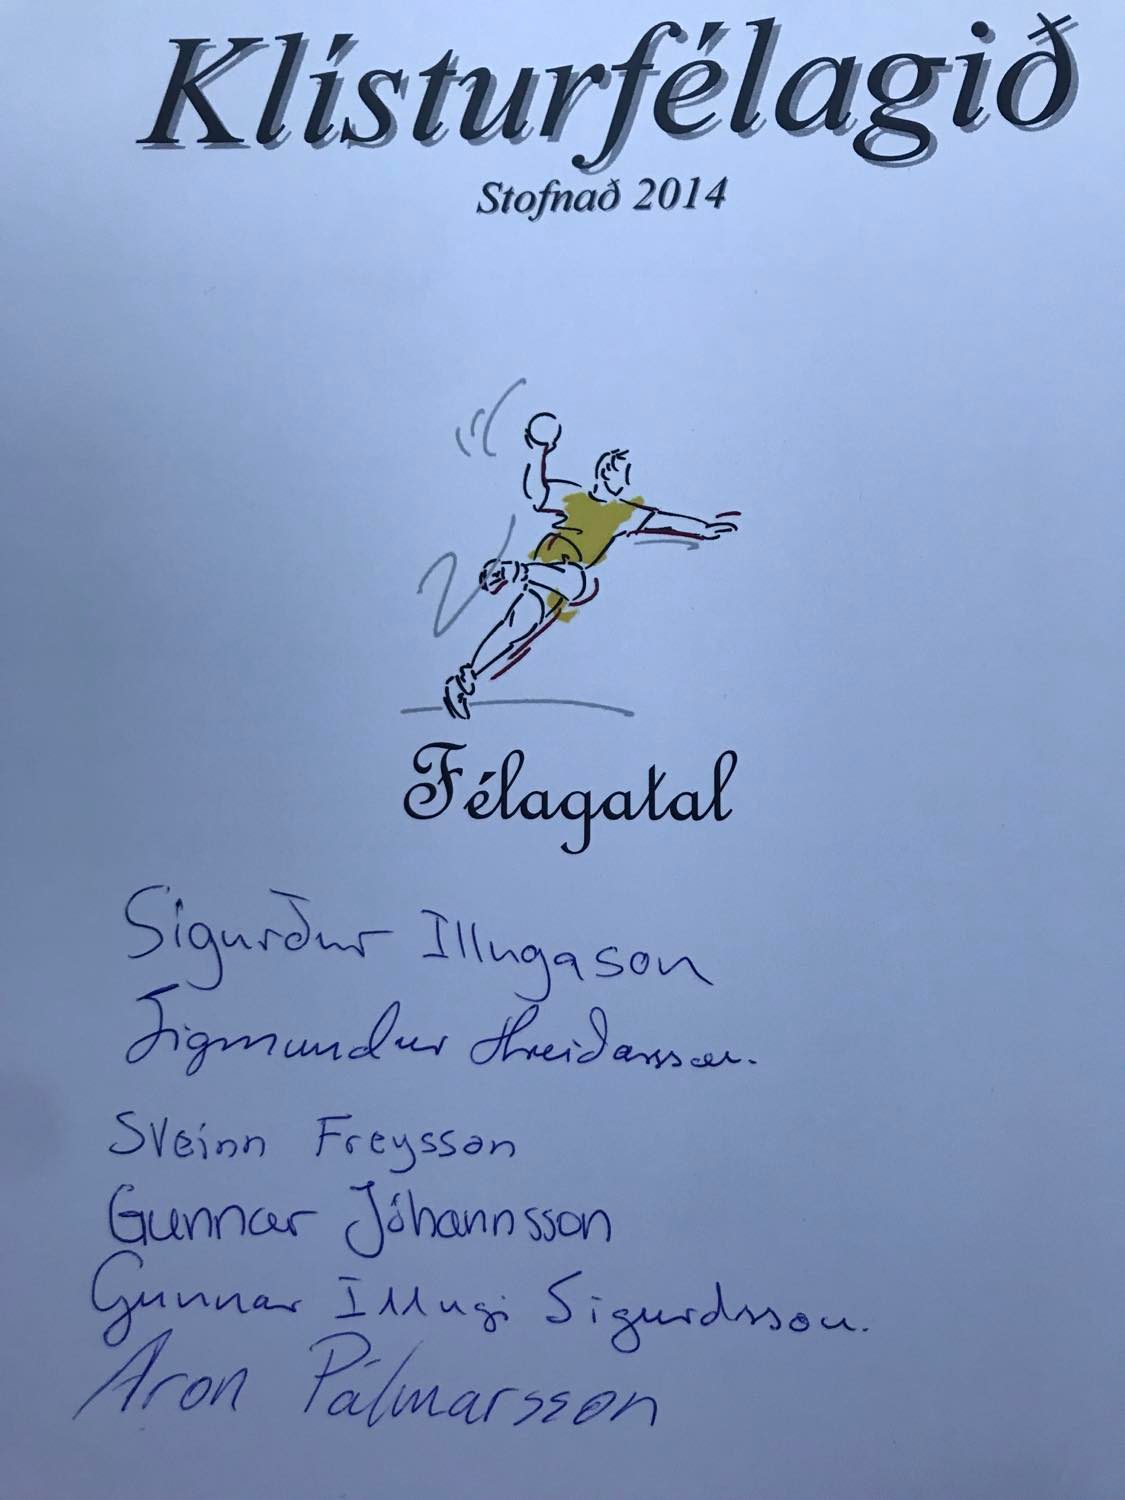 Klísturfélagið
Stofnað 2014
Félagatal
Sigurður Illugason
Sigmundur Hreiðarsson.
Sveinn Freysson
Gunnar Jóhannsson
Gunnar Illugi Sigurdsson.
Aron Pálmarsson